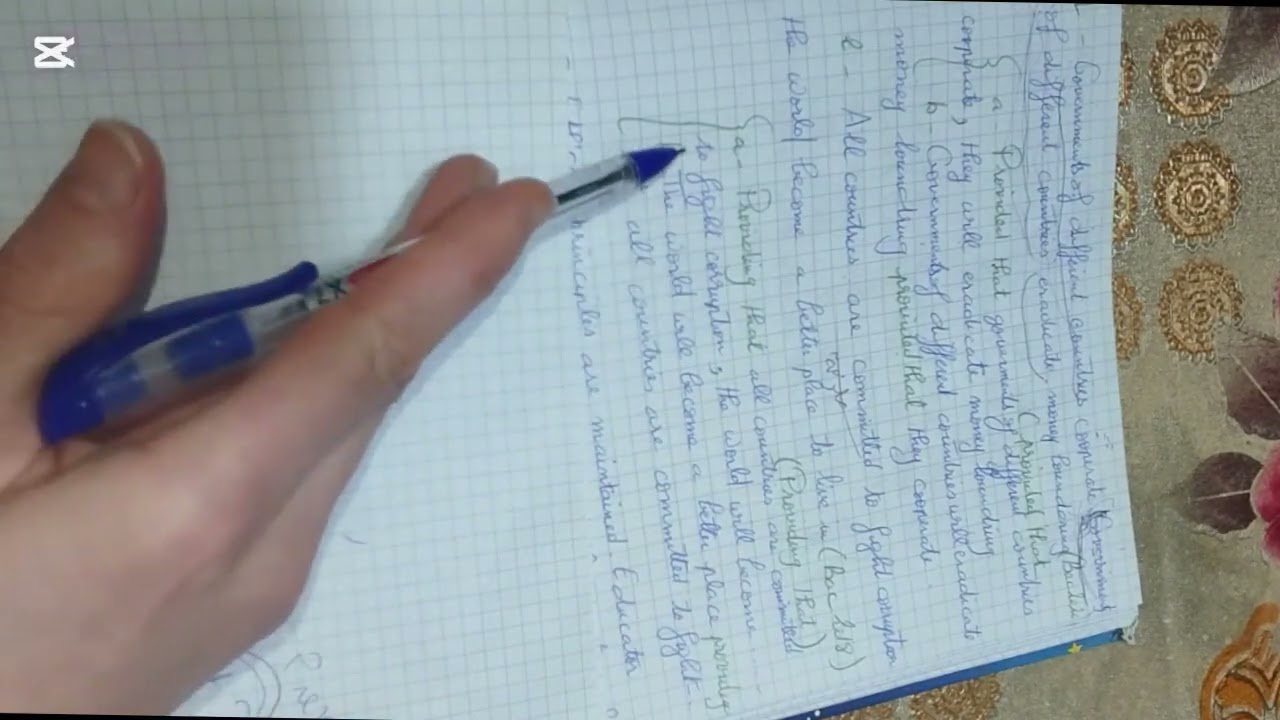 - Governments of different countries cooperate. Governments
of different countries eradicate money laundering (Bac
(provided that
a - Provided that governments of different countries
cooperate, they will eradicate money laundring
b - Governments of different countries will eradicate
money laundring provided that they cooperate.
l - All countries are committed to fight corruption
the world become a better place to live in (Bac 2018)
(Providing that)
a - Providing that all countries are committed
to fight corruption, the world will become
The world will become a better place providing
all countries are committed to fight
principles are maintained. Educator